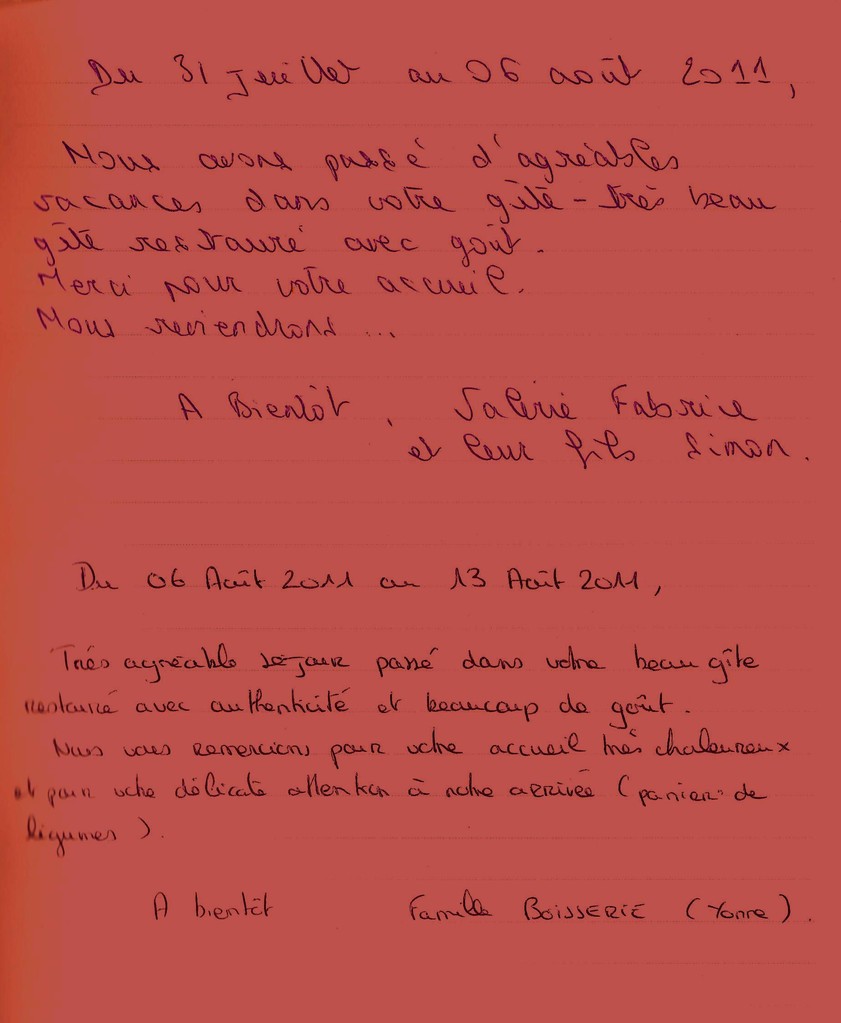 Du 31 Juillet au 06 août 2011,
Nous avons passé d'agréables
vacances dans votre gîte - très beau
gîte restauré avec goût.
Merci pour votre accueil.
Nous reviendrons ...
A Bientôt, Valérie Fabrice
et leur fils Simon.
Du 06 Août 2011 au 13 Août 2011,
Très agréable séjour passé dans votre beau gîte
restauré avec authenticité et beaucoup de goût.
Nous vous remercions pour votre accueil très chaleureux
et pour votre délicate attention à notre arrivée (panier de
légumes).
A bientôt Famille BOISSERIE (Yonne).